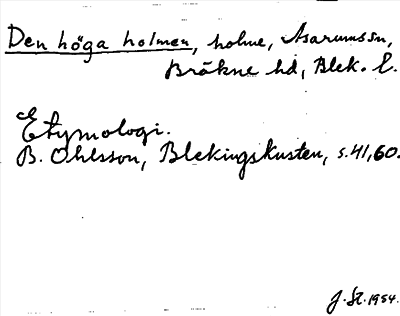 Den höga holmen, holme, Asarums sn,
Bräkne hd, Blek. l.
Etymologi.
B. Ohlsson, Blekingskusten, s. 41, 60.
J. St. 1954.